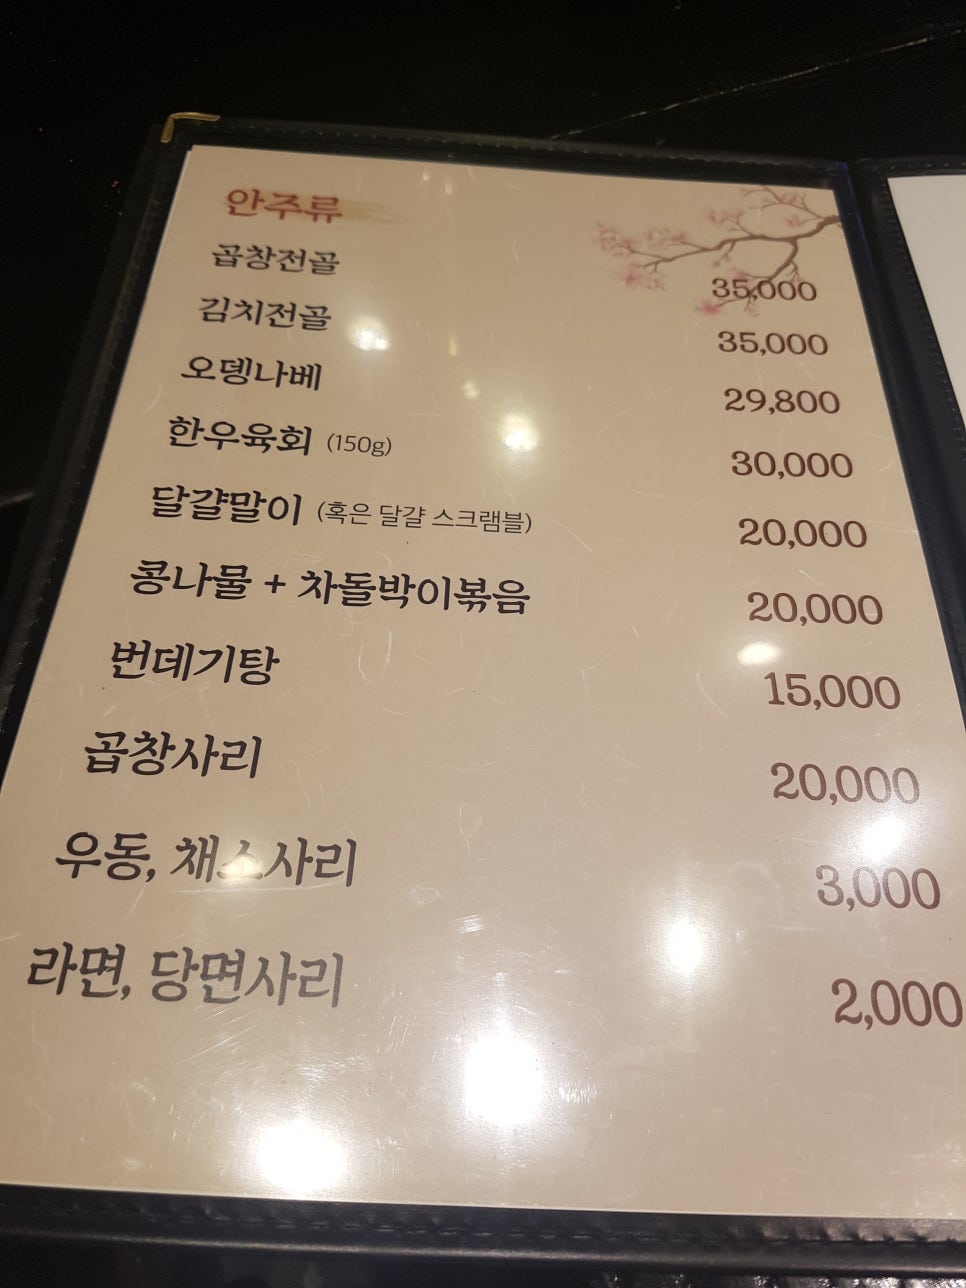 안주류
곱창전골 35,000
김치전골 35,000
오뎅나베 29,800
한우육회 (150g) 30,000
달걀말이 (혹은 달걀 스크램블) 20,000
콩나물 + 차돌박이볶음 20,000
번데기탕 15,000
곱창사리 20,000
우동, 채소사리 3,000
라면, 당면사리 2,000